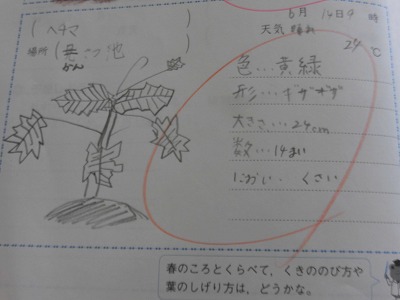 (ヘチマ)
6月 14日 9時
天気 晴れ
24℃
場所(見つけ池)
かん
色…黄緑
形…ギザギザ
大きさ…24cm
数…14まい
におい… くさい
春のころとくらべて，くきののび方や
葉のしげり方は，どうかな。